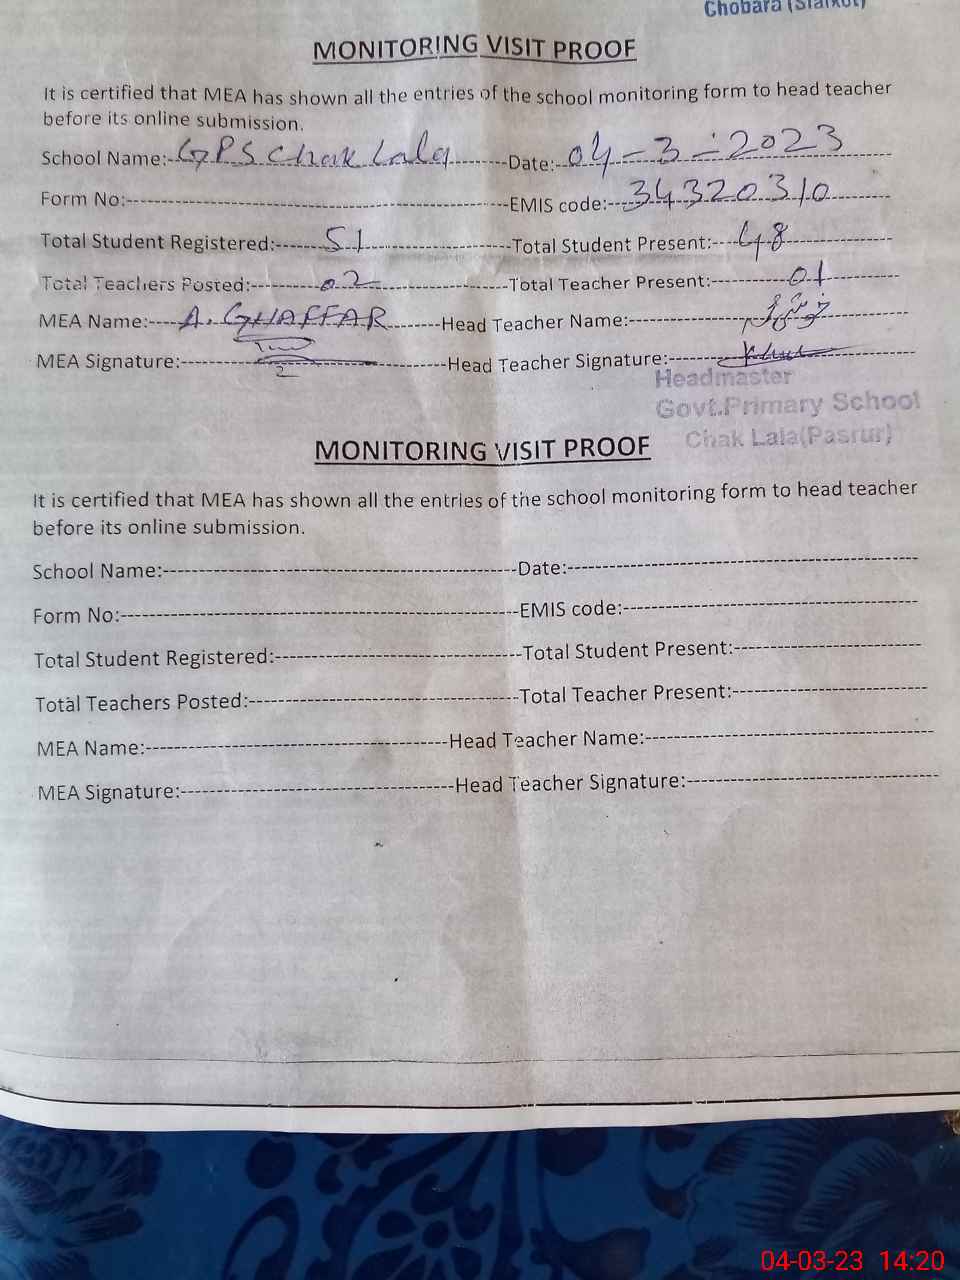 Chobara (Sialkot)
MONITORING VISIT PROOF
It is certified that MEA has shown all the entries of the school monitoring form to head teacher
before its online submission.
School Name:- GPS Chak Lala -------Date:- 04-3-2023
Form No:--------------------EMIS code:--- 34320310
Total Student Registered:------ 51 --------Total Student Present:--- 48
Total Teachers Posted:------- 02 --------Total Teacher Present:------ 01
MEA Name:---- A. GHAFFAR -------Head Teacher Name:---------
MEA Signature:---------------Head Teacher Signature:-------
Headmaster
Govt.Primary School
Chak Lala(Pasrur)
MONITORING VISIT PROOF
It is certified that MEA has shown all the entries of the school monitoring form to head teacher
before its online submission.
School Name:--------------------Date:--------------------
Form No:--------------------EMIS code:--------------------
Total Student Registered:--------------------Total Student Present:--------------------
Total Teachers Posted:--------------------Total Teacher Present:--------------------
MEA Name:--------------------Head Teacher Name:--------------------
MEA Signature:--------------------Head Teacher Signature:--------------------
04-03-23 14:20